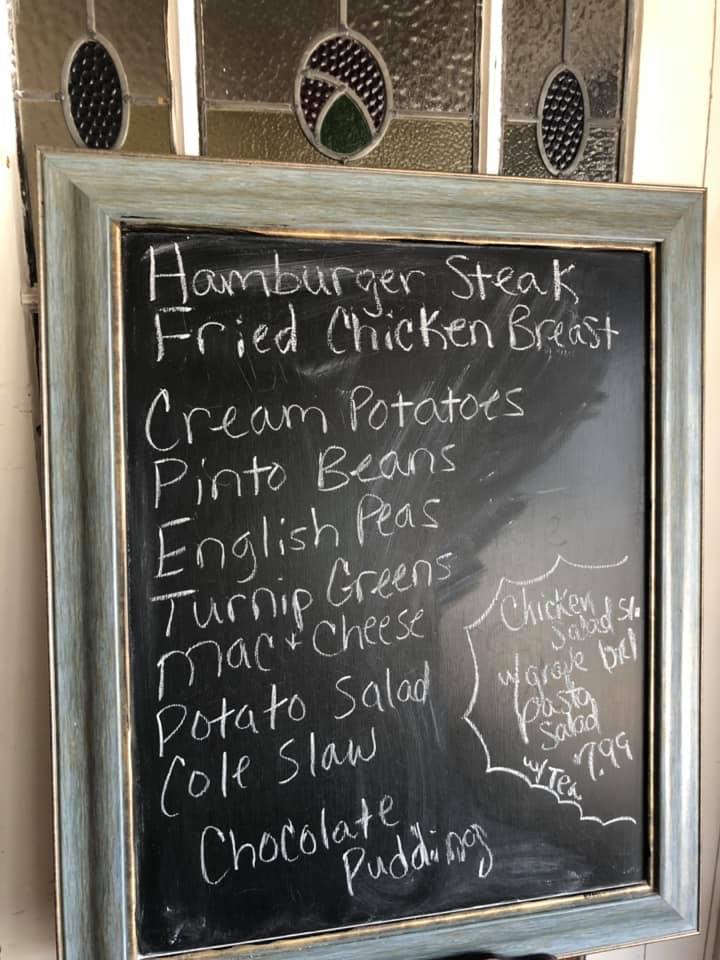 Hamburger Steak
Fried Chicken Breast
Cream Potatoes
Pinto Beans
English Peas
Turnip Greens
Mac + Cheese
Potato Salad
Cole Slaw
Chocolate
Pudding
Chicken
Salad
w/
Pasta
Salad
$7.99
w/Tea